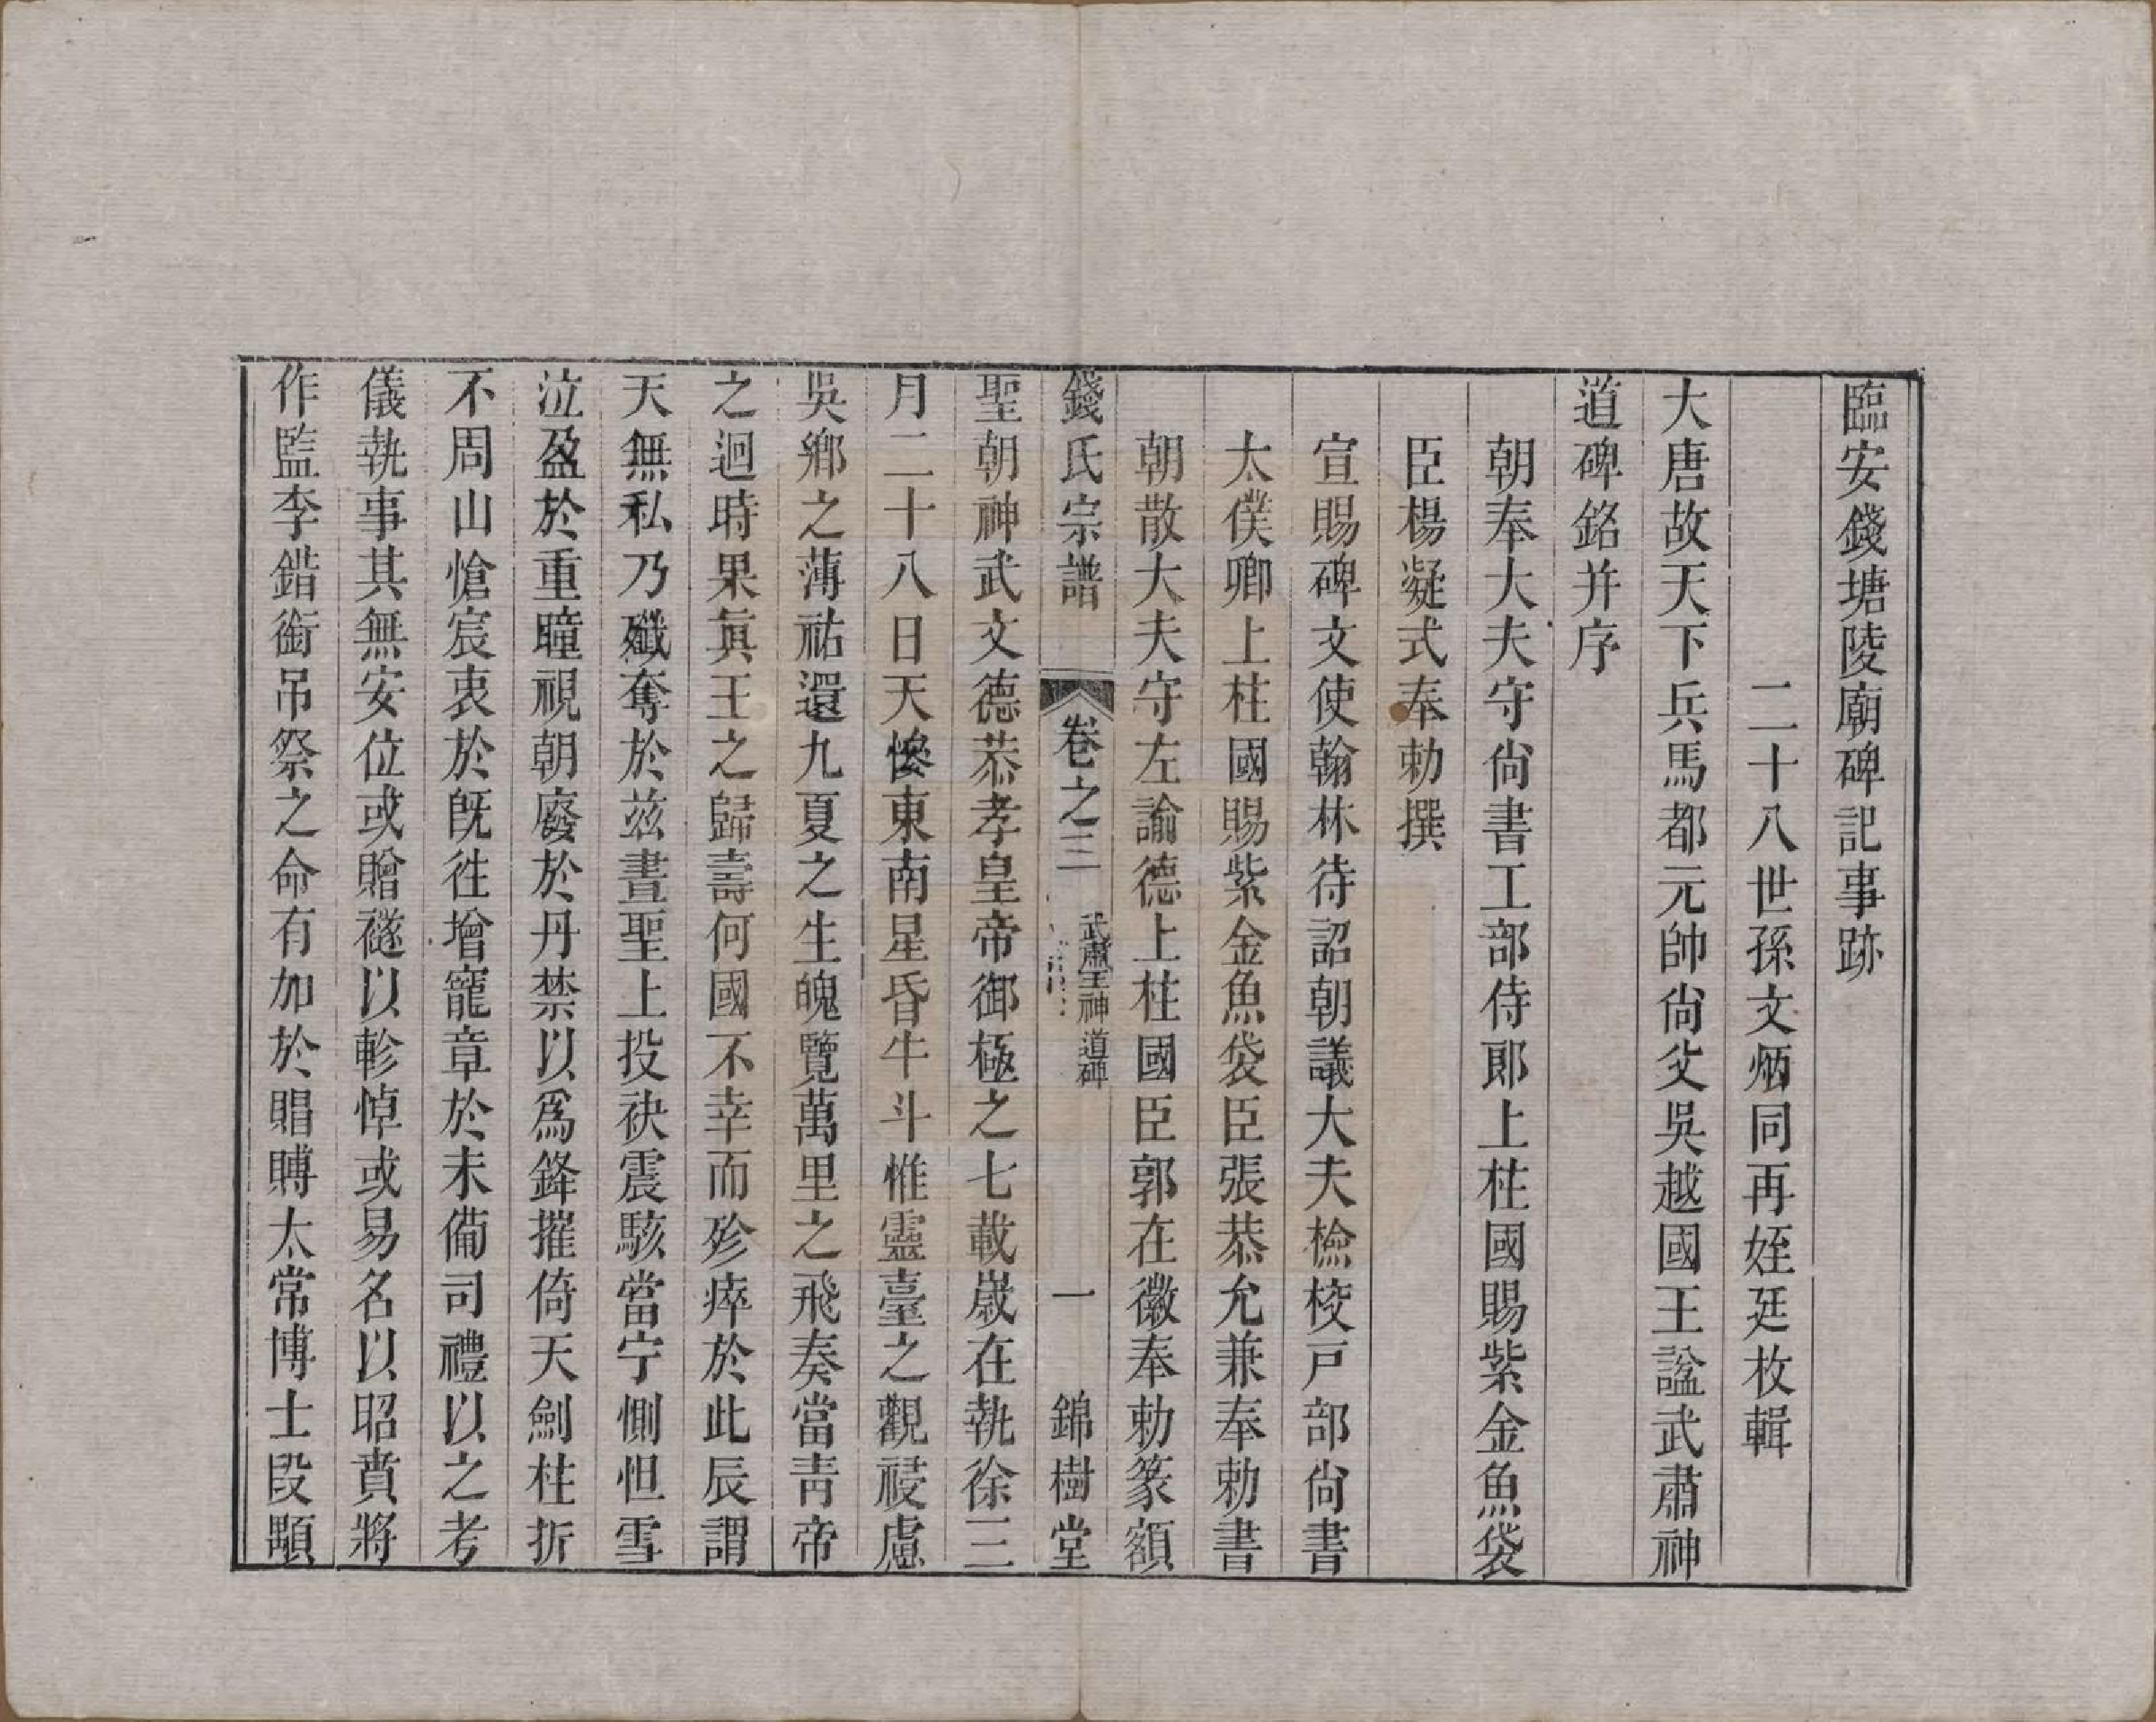 臨安錢塘陵廟碑記事跡
二十八世孫文炳同再姪廷枚輯
大唐故天下兵馬都元帥尙父吳越國王諡武肅神
道碑銘并序
朝奉大夫守尙書工部侍郎上柱國賜紫金魚袋
臣楊凝式奉勅撰
宣賜碑文使翰林待詔朝議大夫檢校戸部尙書
太僕卿上柱國賜紫金魚袋臣張恭允兼奉勅書
朝散大夫守左諭德上柱國臣郭在徽奉勅篆額
錢氏宗譜 卷之三 武肅王神道碑 一 錦樹堂
聖朝神武文德恭孝皇帝御極之七載歲在執徐三
月二十八日天慘東南星昏牛斗惟靈臺之觀祲慮
吳鄉之薄祐還九夏之生魄覽萬里之飛奏當靑帝
之迴時果眞王之歸壽何國不幸而殄瘁於此辰謂
天無私乃殲奪於兹晝聖上投袂震駭當宁惻怛雪
泣盈於重瞳視朝廢於丹禁以爲鋒摧倚天劍柱折
不周山愴宸衷於旣徃增寵章於未備司禮以之考
儀執事其無安位或贈襚以軫悼或易名以昭賁將
作監李鍇銜吊祭之命有加於賵賻太常博士段顒